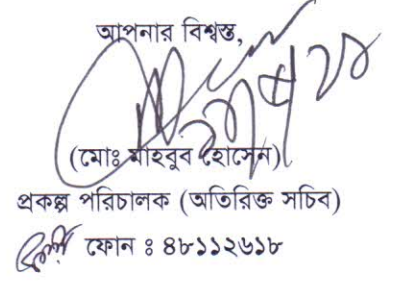 আপনার বিশ্বস্ত,
(মোঃ মাহবুব হোসেন)
প্রকল্প পরিচালক (অতিরিক্ত সচিব)
ফোন ঃ ৪৮১১২৬১৮